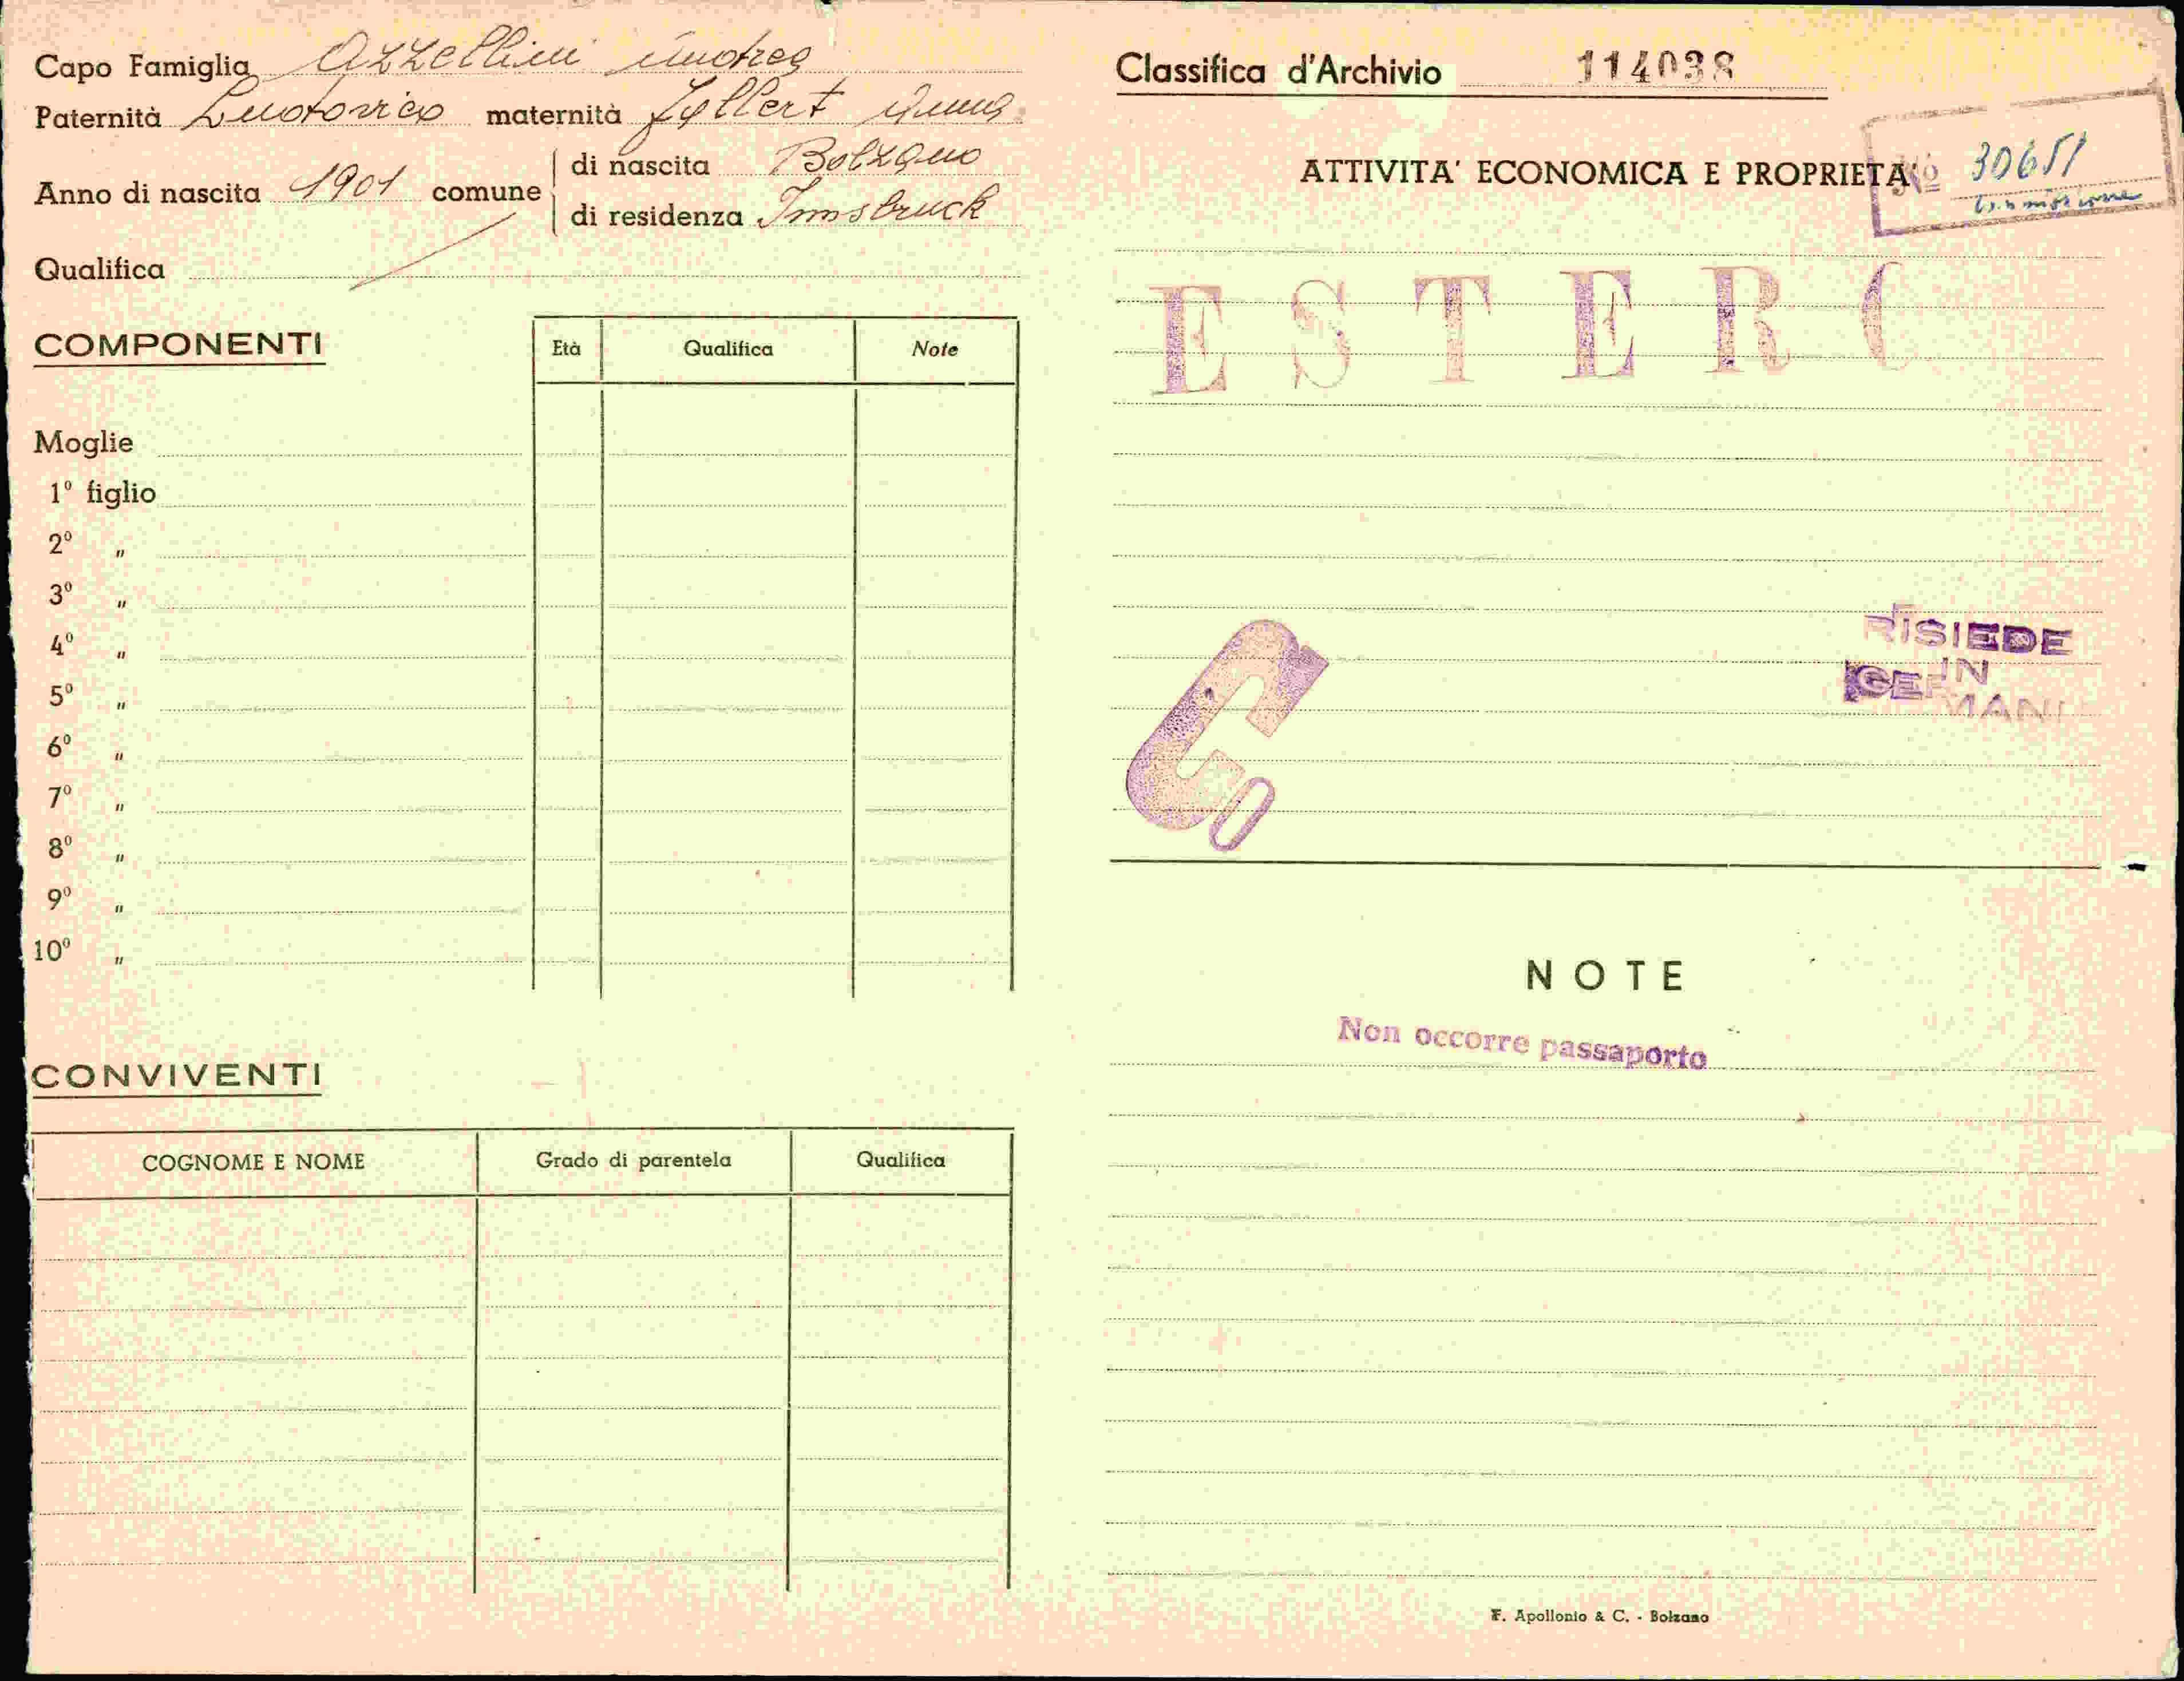 Capo Famiglia Azzellini Andrea
Paternità Ludovico maternità Anna
Anno di nascita 1901 comune
di nascita Bolzano
di residenza Innsbruck
Qualifica
COMPONENTI
Età Qualifica Note
Moglie
1º figlio
2º "
3º "
4º "
5º "
6º "
7º "
8º "
9º "
10º "
CONVIVENTI
COGNOME E NOME Grado di parentela Qualifica
Classifica d'Archivio 114038
Nº 30651
ATTIVITA' ECONOMICA E PROPRIETA'
ESTERO
RISIEDE
IN
GERMANI
Co
NOTE
Non occorre passaporto
F. Apollonio & C. - Bolzano